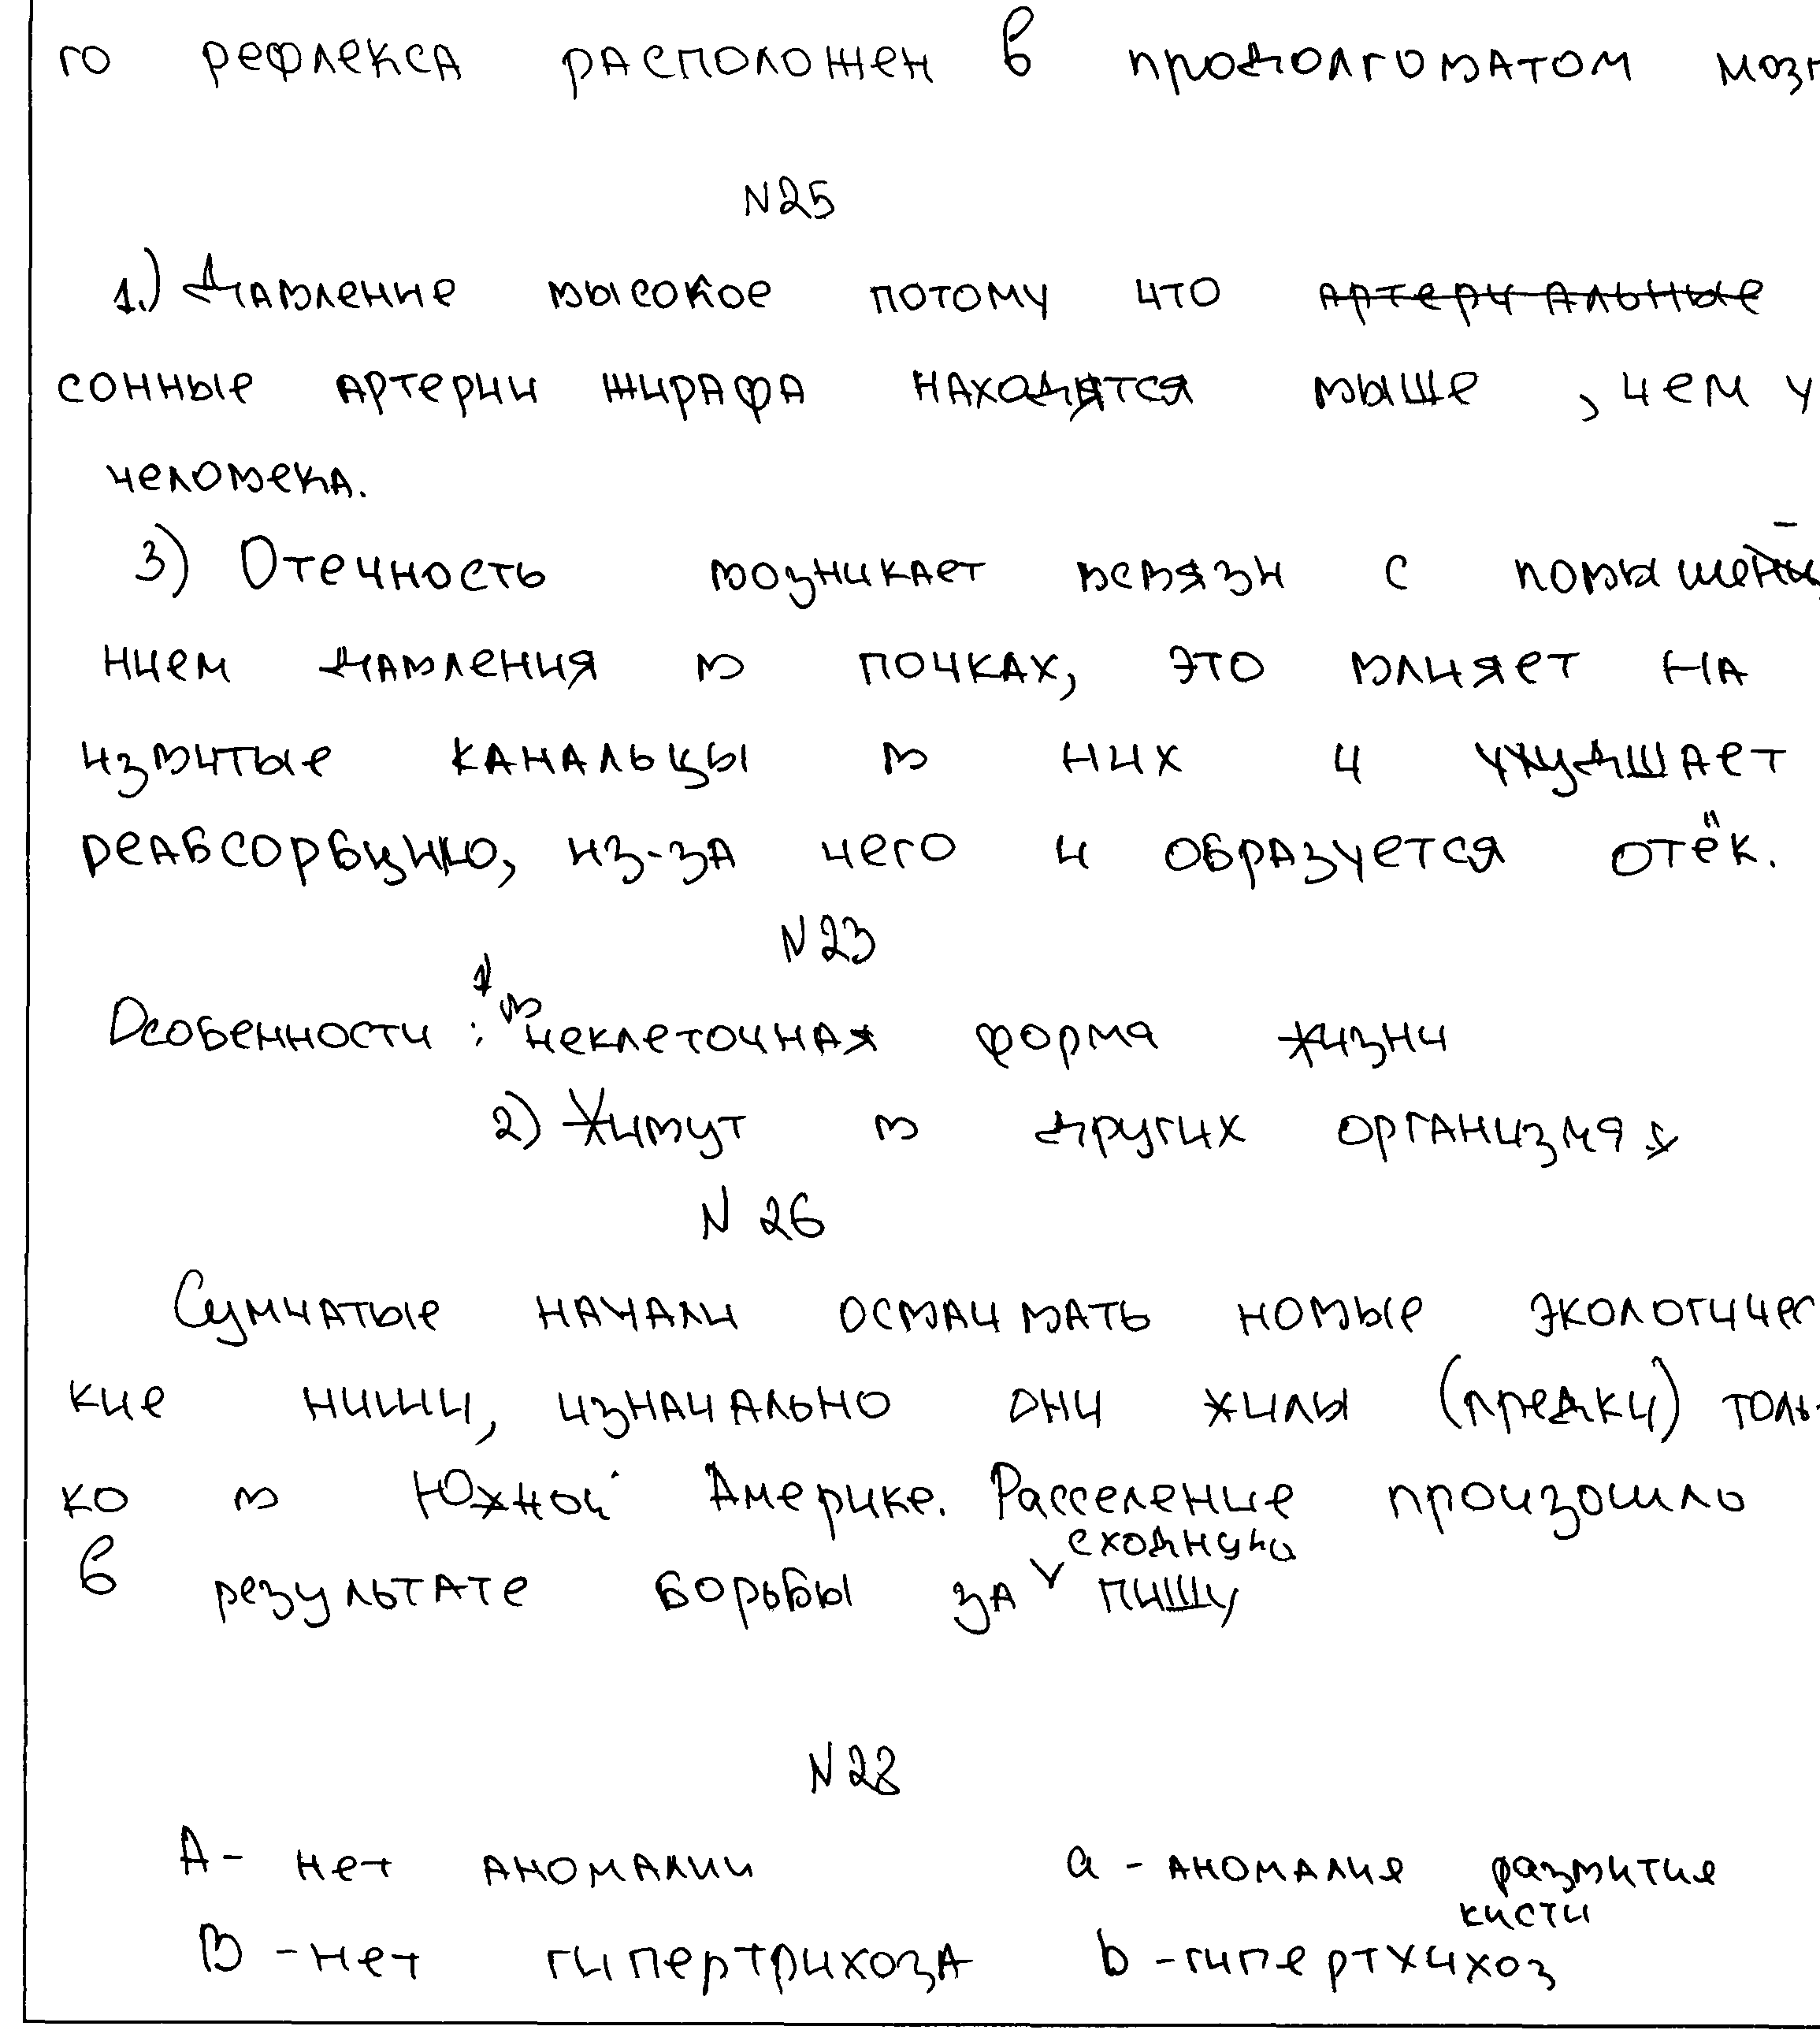 го рефлекса расположен в продолговатом мозг
N25
1.) Давление высокое потому что артериальные
сонные артерии жирафа находятся выше, чем у
человека.
3) Отечность возникает всвязи с повыше-
нием давления в почках, это влияет на
извитые канальцы в них и ухудшает
реабсорбцию, из-за чего и образуется отёк.
N23
Особенности: 1) неклеточная форма жизни
2) Живут в других организмах
N 26
Сумчатые начали осваивать новые экологичес
кие ниши, изначально они жилы (предки) толь-
ко в Южной Америке. Расселение произошло
в результате борьбы за сходную пищу
N28
A - нет аномалии a - аномалия развития кисти
B - нет гипертрихоза b - гипертхихоз